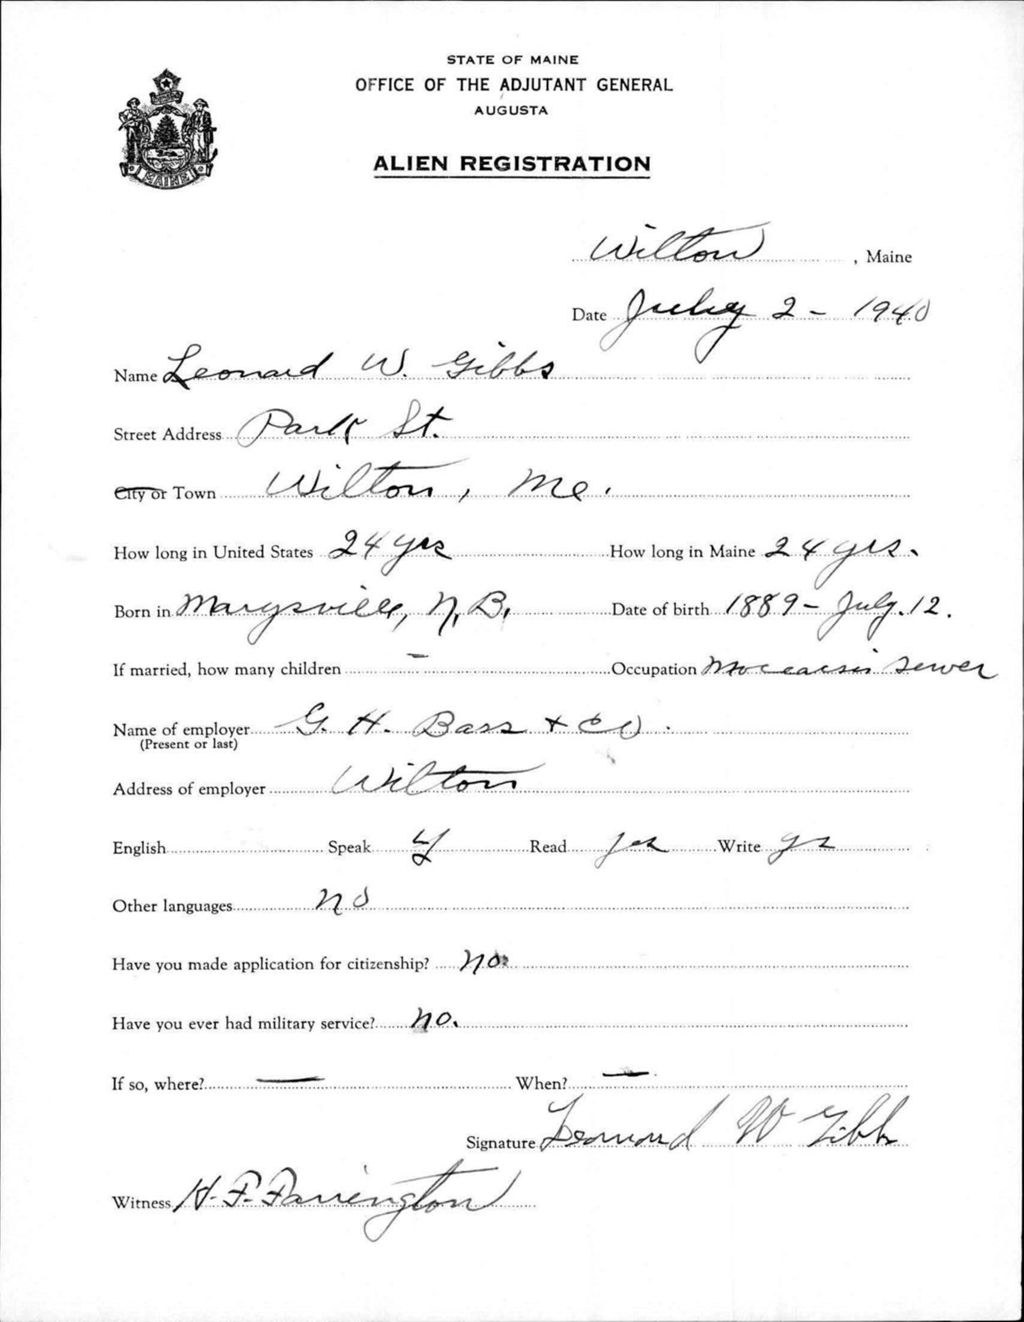 STATE OF MAINE
OFFICE OF THE ADJUTANT GENERAL
AUGUSTA
ALIEN REGISTRATION
MAINE
Wilton, Maine
Date July 2 - 1940
Name Leonard W. Gibbs
Street Address Park St.
City or Town Wilton, Me.
How long in United States 24 yrs How long in Maine 24 yrs.
Born in Marysville, N.B. Date of birth 1889 - July. 12.
If married, how many children - Occupation Moccasin Sewer
Name of employer G. H. Bass + Co.
(Present or last)
Address of employer Wilton
English Speak y Read yes Write ys
Other languages no
Have you made application for citizenship? no.
Have you ever had military service? no.
If so, where? — When? —
Signature Leonard W Gibbs
Witness H. F. Farrington